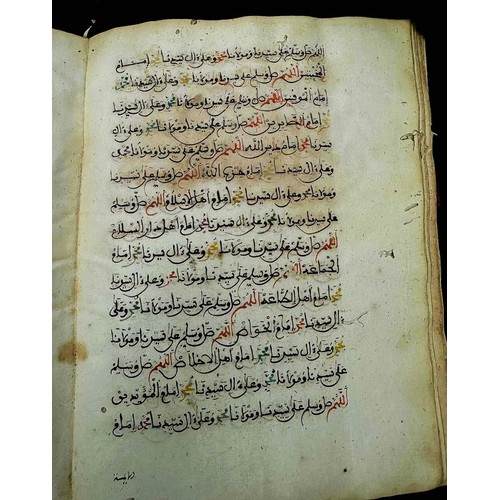 اللهم صل وسلم على سيدنا ومولانا محمد وعلى ال سيدنا محمد امام
اللهم صل وسلم على سيدنا ومولانا محمد وعلى ال سيدنا محمد
امام اللهم صل وسلم على سيدنا ومولانا محمد وعلى ال سيدنا
محمد امام الصابرين اللهم صل وسلم على سيدنا ومولانا محمد وعلى ال
سيدنا محمد امام الله اللهم صل وسلم على سيدنا ومولانا محمد
وعلى ال سيدنا محمد امام حزب الله اللهم صل وسلم على سيدنا
ومولانا محمد وعلى ال سيدنا محمد امام اهل الاسلام اللهم صل وسلم
على سيدنا ومولانا محمد وعلى ال سيدنا محمد امام اهل دار السلام
اللهم صل وسلم على سيدنا ومولانا محمد وعلى ال سيدنا محمد امام
الجماعة اللهم صل وسلم على سيدنا ومولانا محمد وعلى ال سيدنا
محمد امام اهل الجماعة اللهم صل وسلم على سيدنا ومولانا محمد وعلى
ال سيدنا محمد امام الخواص اللهم صل وسلم على سيدنا ومولانا
محمد وعلى ال سيدنا محمد امام اهل الاخلاص اللهم صل وسلم
على سيدنا ومولانا محمد وعلى ال سيدنا محمد امام
اللهم صل وسلم على سيدنا ومولانا محمد وعلى ال سيدنا محمد امام